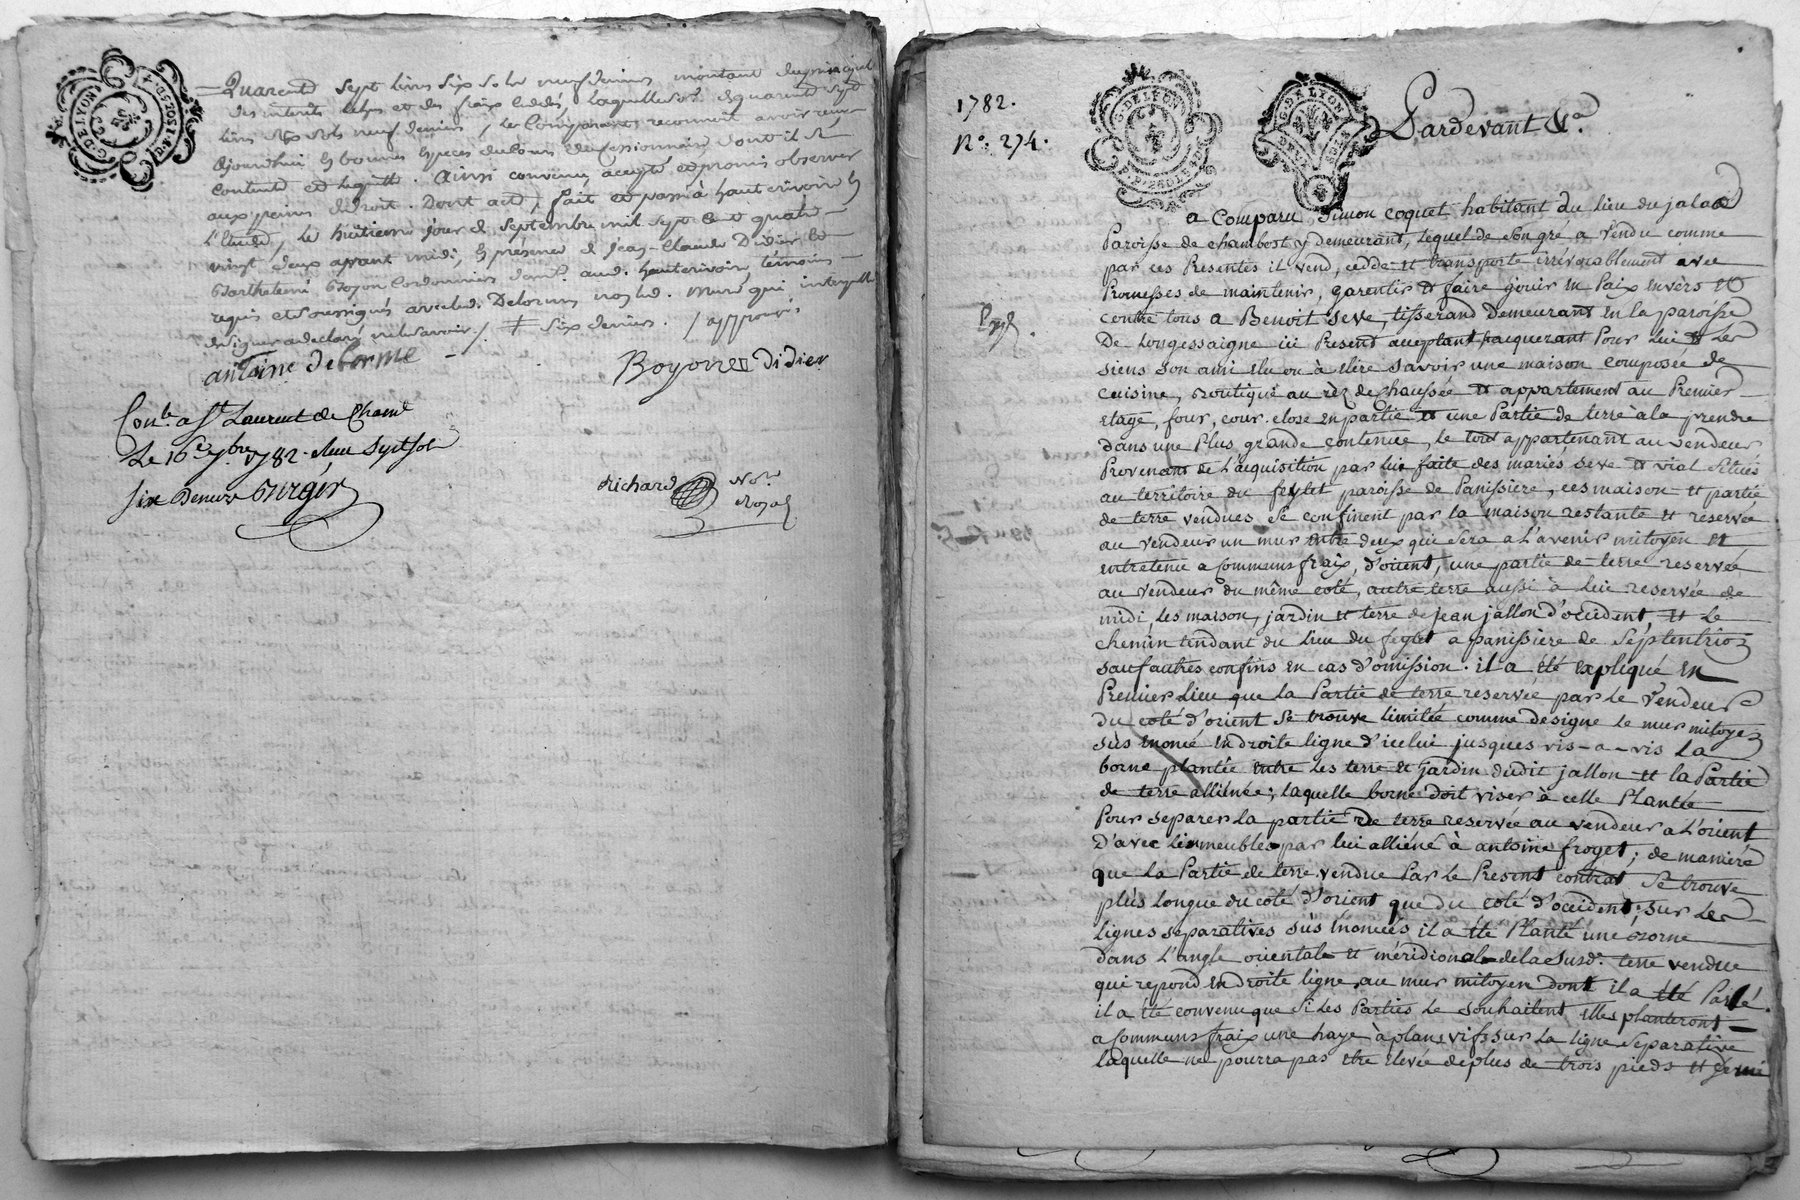 Quarente sept livres six sols neuf deniers montant du principal
des interets liches et des fraix cedés, laquelle so.e de quarente sept
livres six sols neuf deniers, le Comparant reconnoit avoir reçu
djourdhui en bonnes especes du cours du cessionnaire dont il se
contente et le quitte. Ainsi convenu, accepté et promis observer
aux peines de droit. Dont acte, fait et passé à hauterivoire en
L'Etude, le huitieme jour de septembre mil sept cent quatre
vingt deux avant midi, en présence de Jean-Claude Didier et
Barthelemi Boyon Cordonniers aud. hauterivoire, témoins
requis et soussignés avec led. Delorme non led. Muré qui interpellé
de signer a declaré ne le savoir / ≠ six deniers. / approuvé
antoine delorme
Boyon Didier
Con.lé a S.t Laurent de Cham.t
Le 16.e 7bre 1782. Reçu Sept sols
six Deniers
richard No.re
Royal
G. DE LYON
1782.
N.o 274.
G. DE LYON
G. DE LYON
DEUX SOLS
Pardevant &.a
a Comparu Simon coquet habitant du Lieu du jalad
Paroisse de chambost y demeurant, lequel de son gré a vendu comme
par ces Presentes il vend, cedde et transporte irrévocablement avec
Promesses de maintenir, garentir et faire jouir en Paix envers et
contre tous a Benoit seve, tisserand Demeurant en la paroisse
De Longessaigne ici Present acceptant et acquerant Pour Lui et Les
siens son ami elu ou à elire savoir une maison composée de
cuisine, Boutique au rez de chaussée et appartement au Premier
Etage, four, cour close en partie et une Partie de terre à la prendre
dans une Plus grande contenue, le tout appartenant au vendeur
Provenant de L'acquisition par lui faite des mariés seve et vial situés
au territoire du feylet paroisse de Panissiere, ces maison et partie
de terre vendues se confinent par la maison restante et reservée
au vendeur un mur entre deux qui sera a L'avenir mitoyen et
entretenu a communs fraix, d'orient, une partie de terre reservée
au vendeur du même coté, autre terre aussi à lui reservée de
midi, Les maison, jardin et terre de jean jallon d'occident, et Le
chemin tendant du Lieu du feylet a panissiere de Septentrion
sauf autres confins en cas d'omission. il a été expliqué en
Premier Lieu que la Partie de terre reservée par le Vendeur
du coté d'orient se trouve limitée comme designe le mur mitoyen
sus enoncé en droite ligne d'icelui jusques vis-a-vis la
borne plantée entre les terre et jardin dudit jallon et la Partie
de terre alliénée; laquelle borne doit viser à celle Plantée
Pour separer la partie de terre reservée au vendeur a L'orient
d'avec L'immeuble par lui alliéné à antoine froget; de maniere
que la Partie de terre vendue Par le Present contrat se trouve
plus longue du coté d'orient que du coté d'occident; sur Les
lignes separatives sus enoncées il a été Planté une Borne
dans L'angle orientale et méridionale de la susd.e terre vendue
qui repond en droite ligne au mur mitoyen dont il a été Parlé.
il a été convenu que si les Parties le souhaitent elles planteront
a Communs fraix une haye à plans vifs sur la ligne separative
laquelle ne pourra pas etre elevée de plus de trois pieds et demi